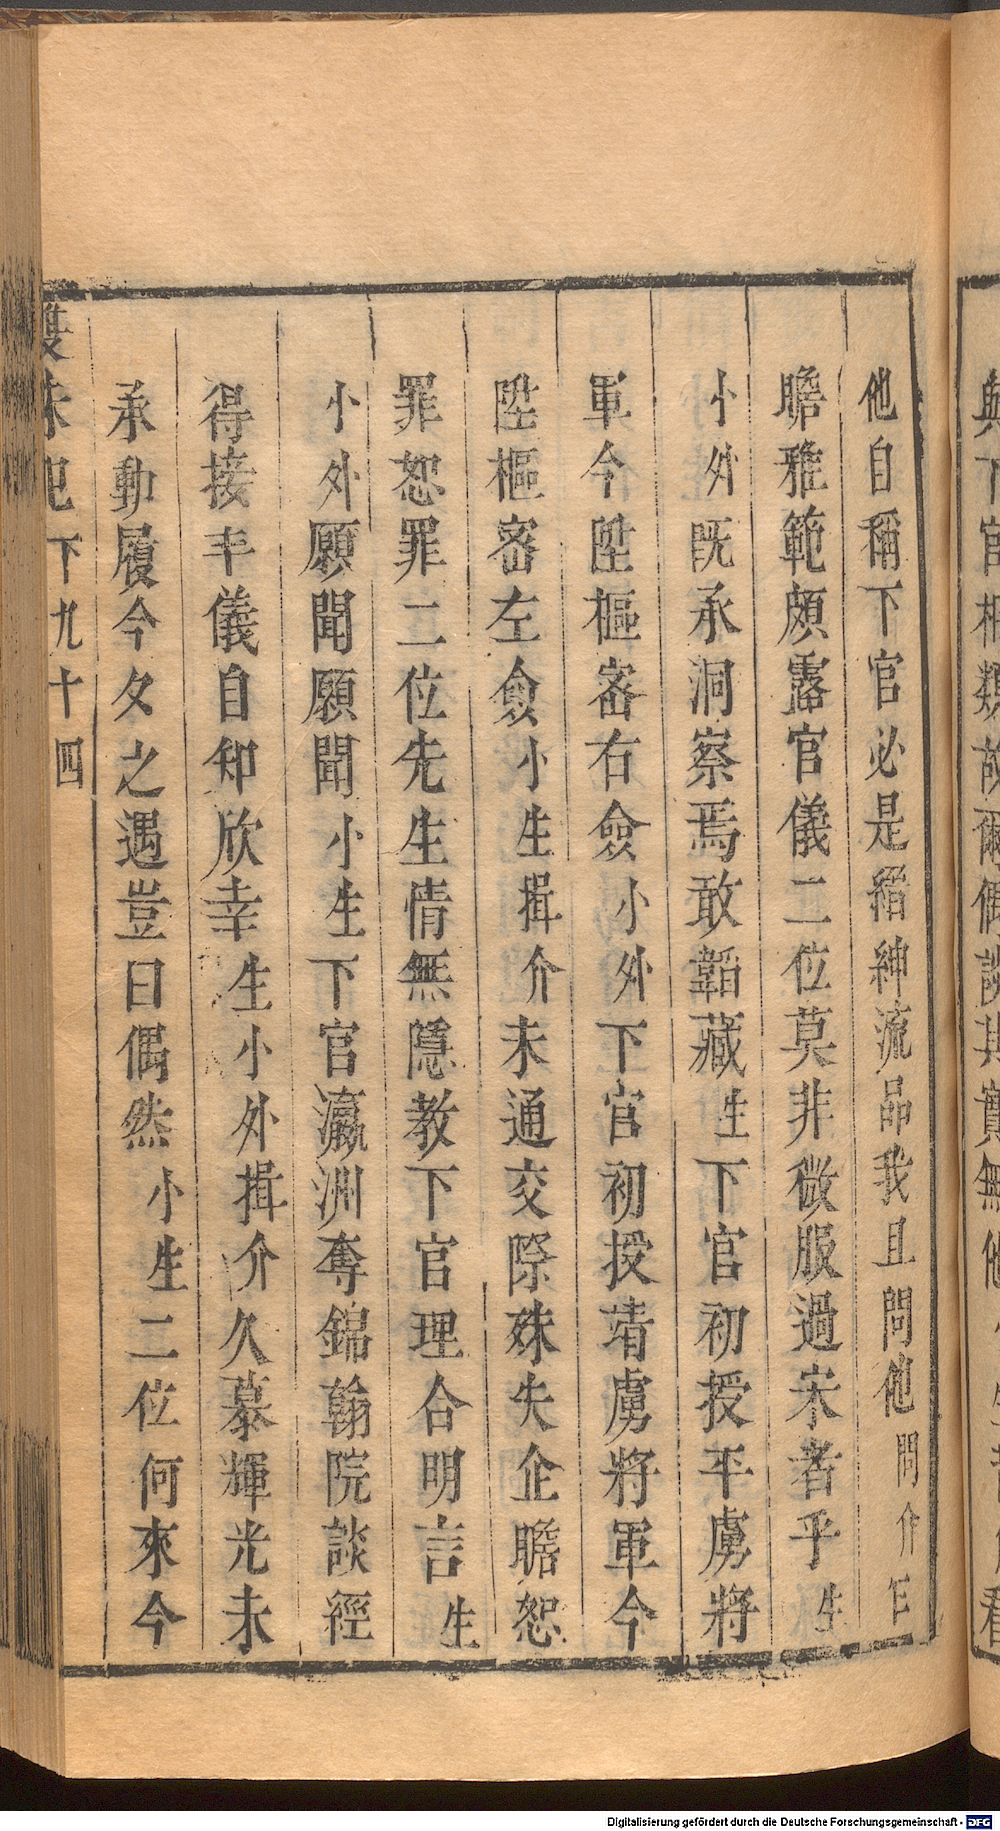 他自稱下官必是縉紳流品我且問他問介乍
瞻雅範頗露官儀二位莫非微服過宋者乎生
小外既承洞察焉敢韜藏生下官初授平虜將
軍今陞樞密右僉小外下官初授靖虜將軍今
陞樞密左僉小生揖介未通交際殊失企瞻恕
罪恕罪二位先生情無隱教下官理合明言生
小外願聞願聞小生下官瀛洲奪錦翰院談經
得接丰儀自知欣幸生小外揖介久慕輝光未
承動履今夕之遇豈曰偶然小生二位何來今
珠記下九十四
與下官相類故爾偶談其實無他
Digitalisierung gefördert durch die Deutsche Forschungsgemeinschaft - DFG